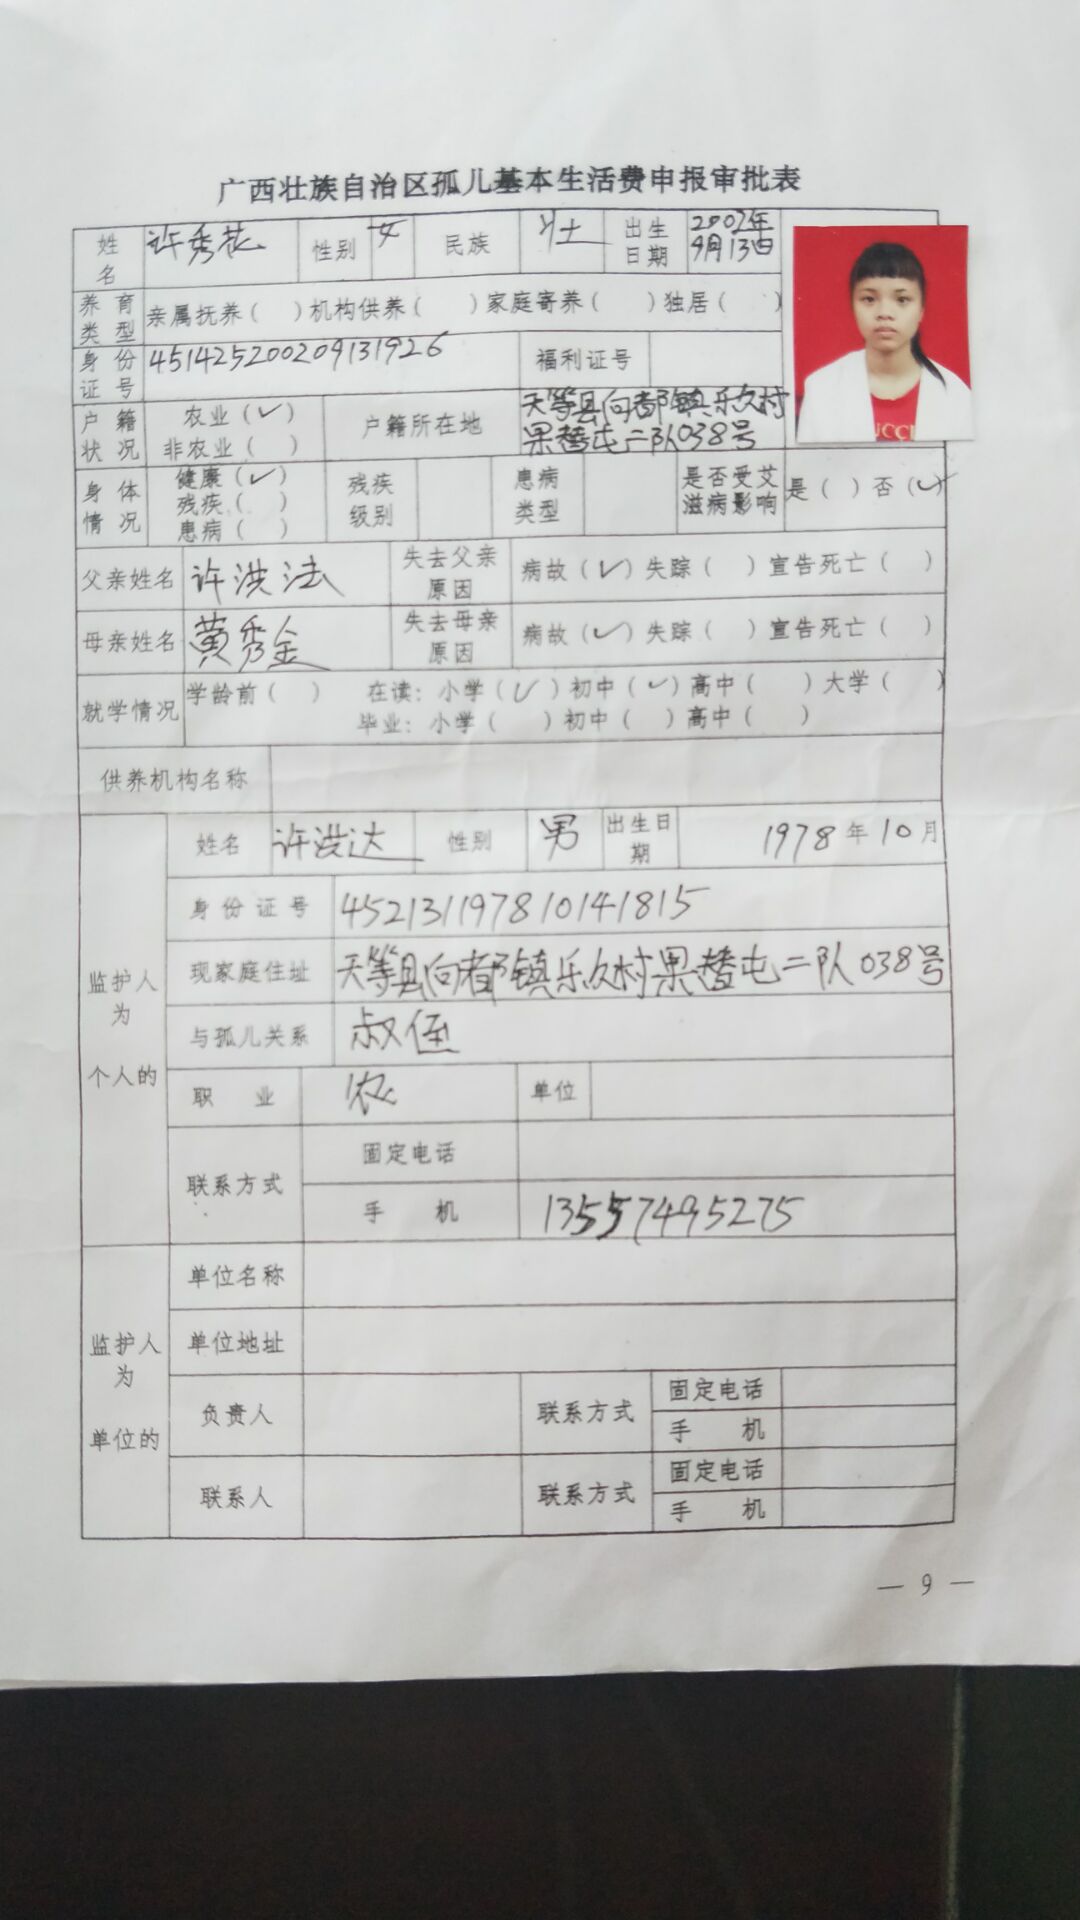 广西壮族自治区孤儿基本生活费申报审批表
姓名 许秀花 性别 女 民族 壮 出生日期 2002年9月13日
养育类型 亲属抚养（ ）机构供养（ ）家庭寄养（ ）独居（ ）
身份证号 451425200209131926 福利证号
户籍状况 农业（✓） 非农业（ ） 户籍所在地 天等县向都镇乐久村果替屯二队038号
身体情况 健康（✓） 残疾（ ） 患病（ ） 残疾级别 患病类型 是否受艾滋病影响 是（ ）否（✓）
父亲姓名 许洪法 失去父亲原因 病故（✓）失踪（ ）宣告死亡（ ）
母亲姓名 黄秀金 失去母亲原因 病故（✓）失踪（ ）宣告死亡（ ）
就学情况 学龄前（ ） 在读：小学（✓）初中（✓）高中（ ）大学（ ）
毕业：小学（ ）初中（ ）高中（ ）
供养机构名称
监护人为个人的
姓名 许洪达 性别 男 出生日期 1978年10月
身份证号 452131197810141815
现家庭住址 天等县向都镇乐久村果替屯二队038号
与孤儿关系 叔侄
职业 农 单位
联系方式 固定电话
手机 13557495275
监护人为单位的
单位名称
单位地址
负责人 联系方式 固定电话
手机
联系人 联系方式 固定电话
手机
UCCI
— 9 —